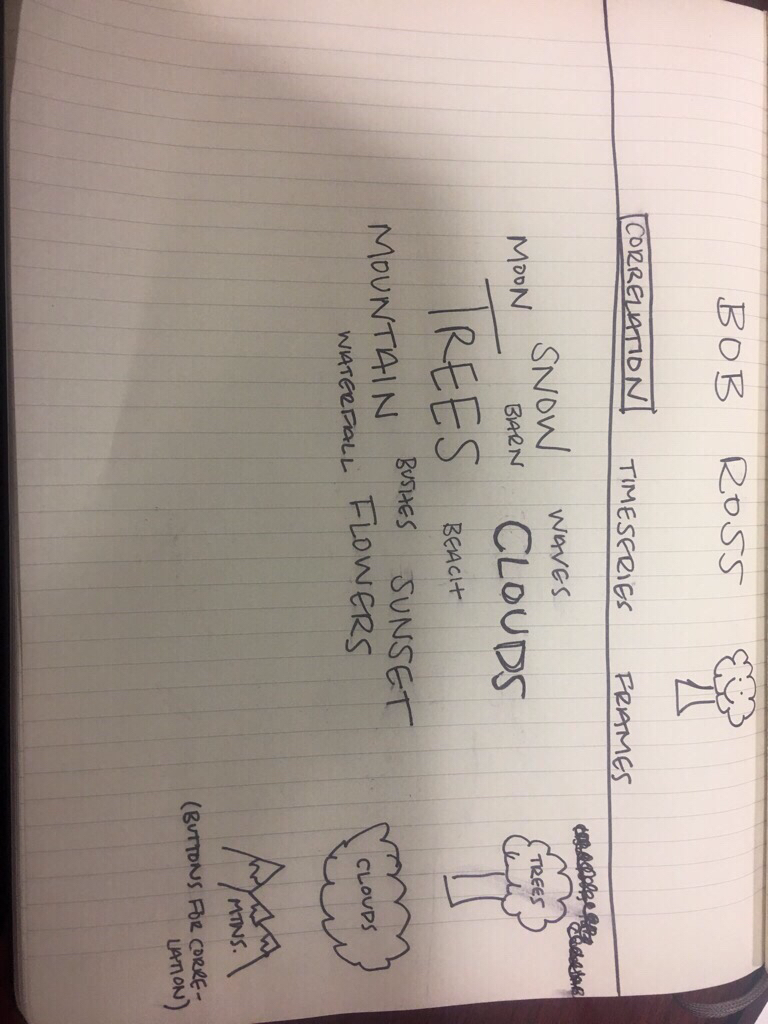 BOB ROSS
CORRELATION TIMESERIES FRAMES
WAVES
SNOW
MOON BARN CLOUDS
TREES BEACH
BUSHES SUNSET
MOUNTAIN FLOWERS
WATERFALL
TREES
CLOUDS
MTNS.
(BUTTONS FOR CORRE-
LATION)